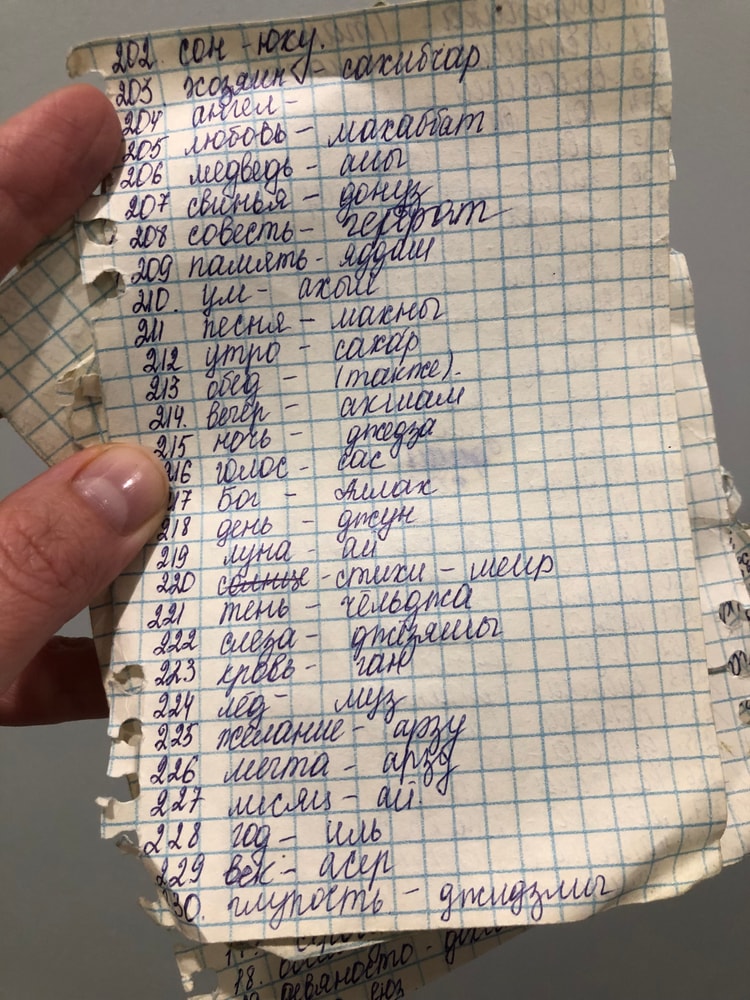 202. сон - юку.
203 хозяин - сахибчар
204 ангел -
205 любовь - махаббат
206 медведь - аиы
207 свинья - донуз
208 совесть -
209 память - яддаш
210. ум - ахыл
211 песня - махны
212 утро - сахар
213 обед - (также).
214. вечер - ахшам
215 ночь - джедза
216 голос - сас
17 Бог - Аллах
218 день - джун
219 луна - ай
220 солнце - стихи - шеир
221 тень - чельджа
222 слеза - джёзяшы
223 кровь - ган
224 лёд - муз
225 желание - арзу
226 мечта - арзу
227 месяц - ай.
228 год - иль
229 век - асер
230. глупость - джидзлыг
18.
девяносто -